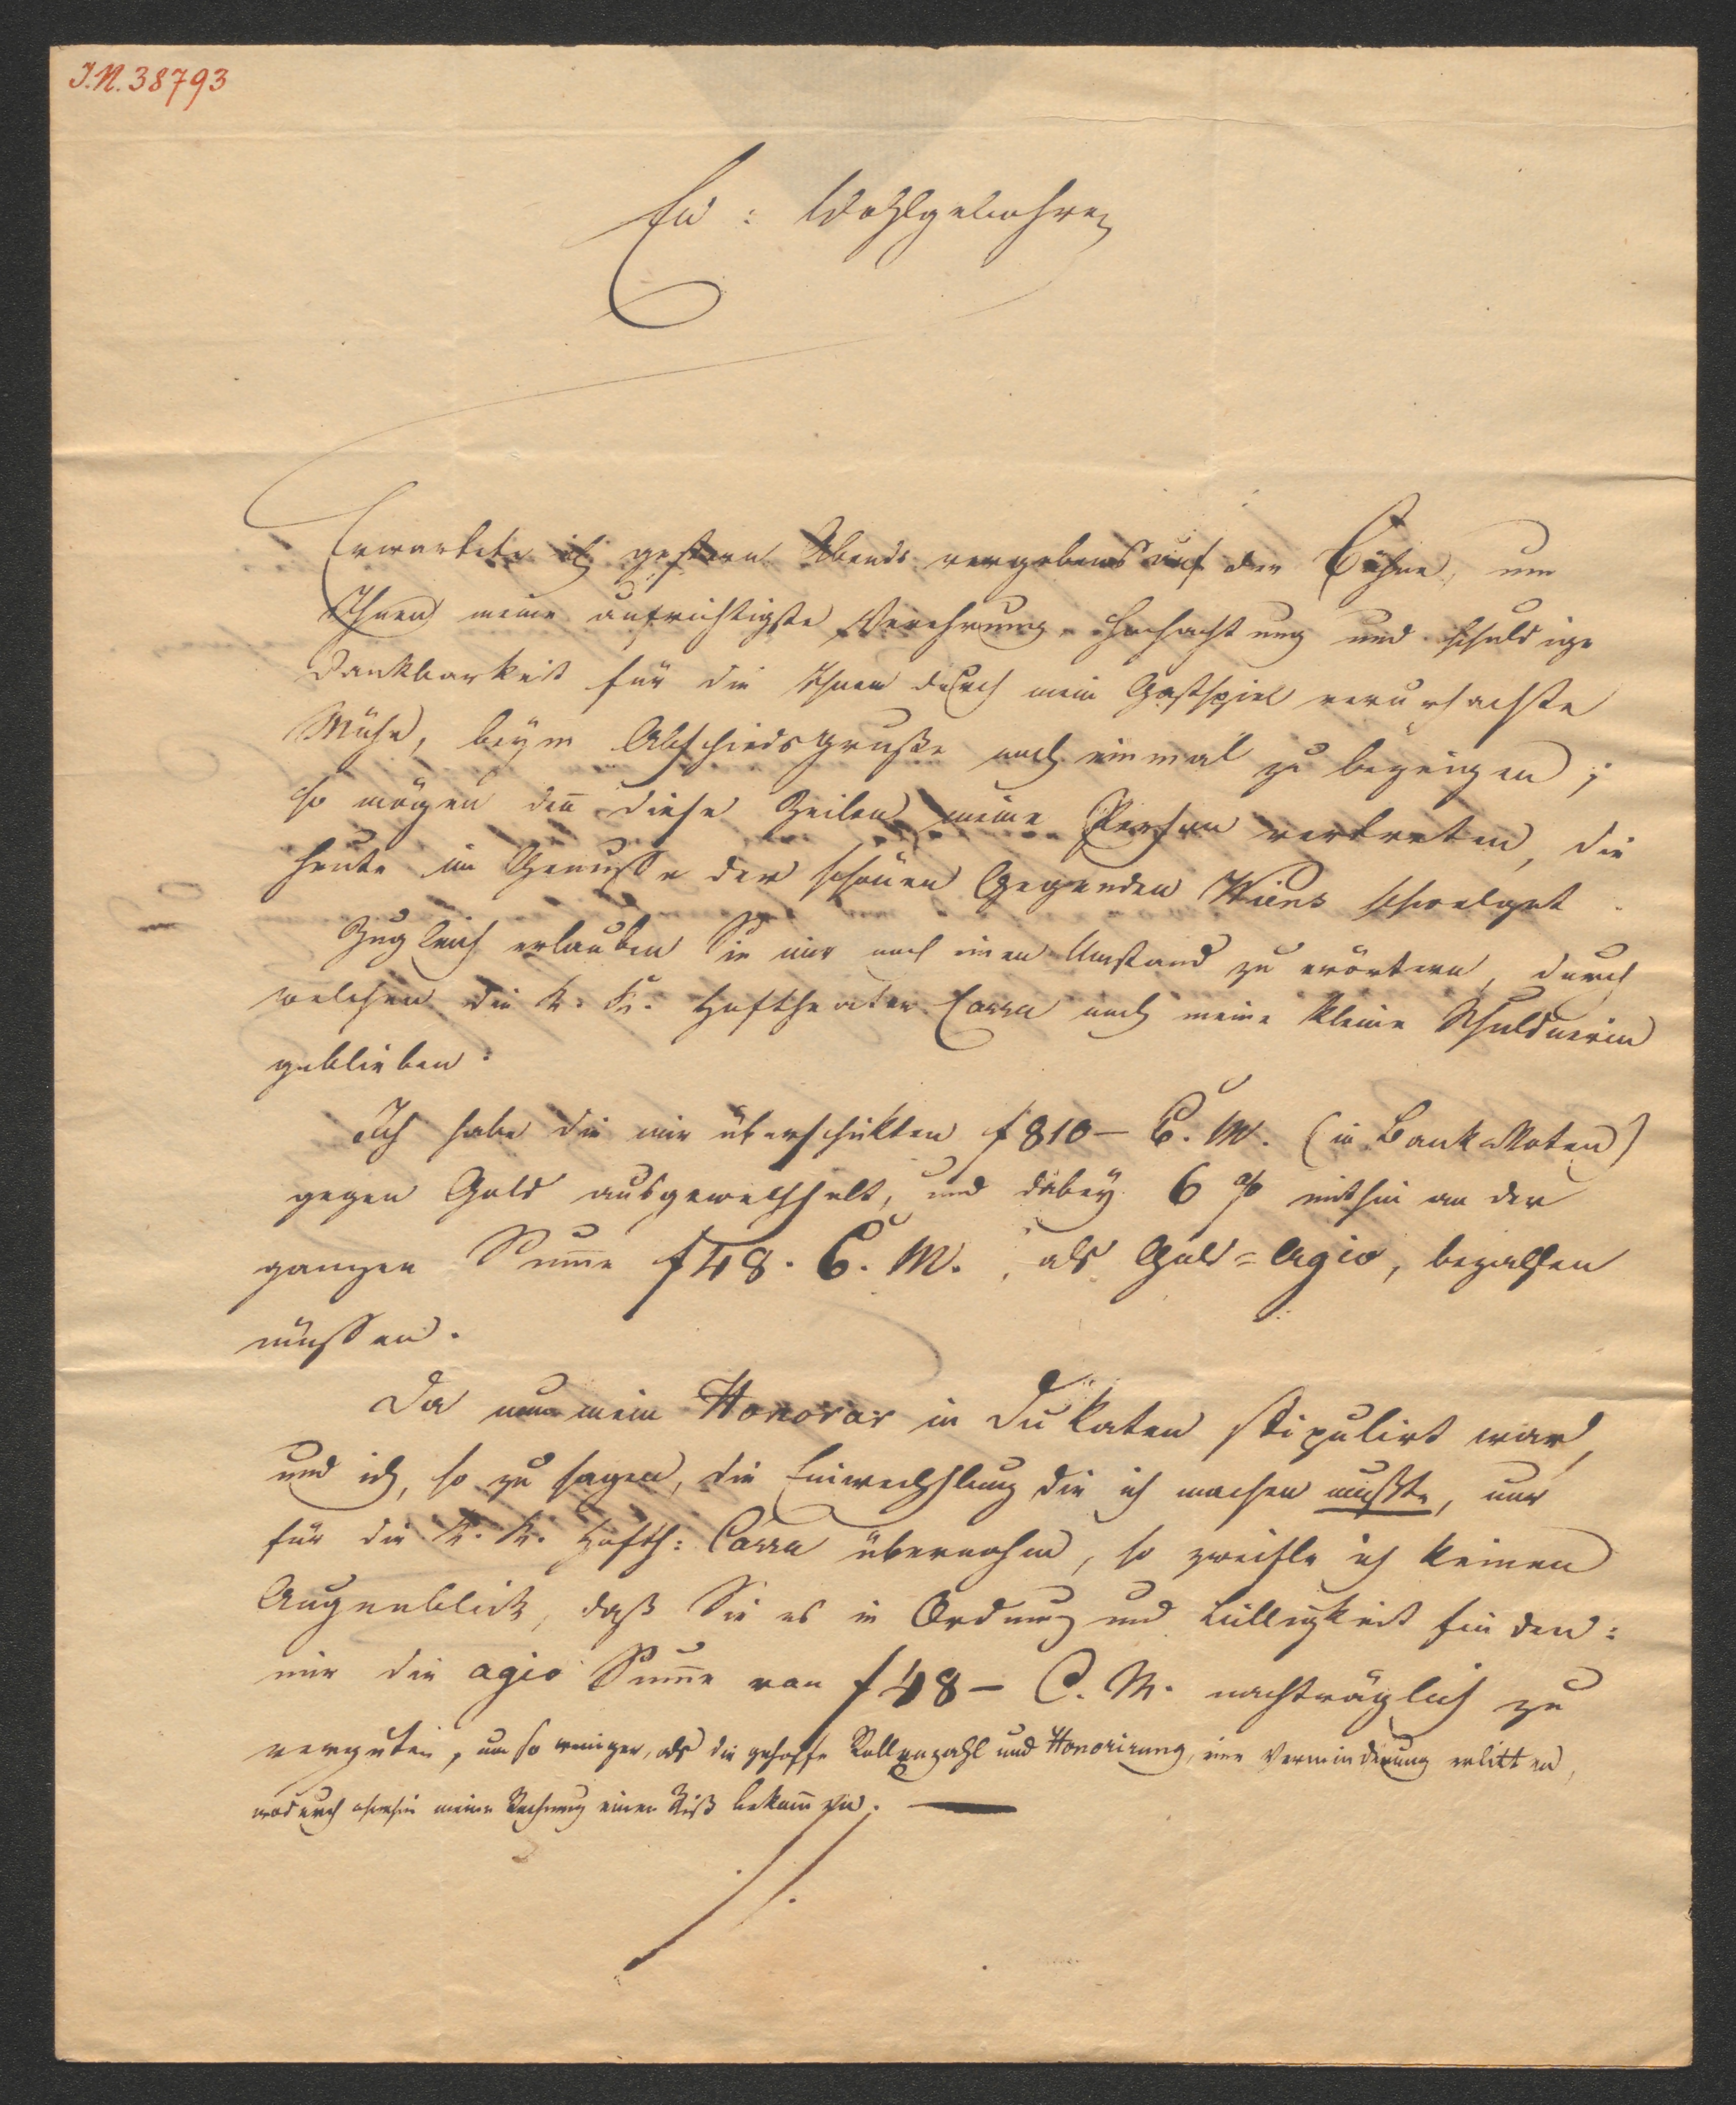 I.N. 38793
Ew: Wohlgebohren
Erwartete ich gestern Abends vergebens auf der Bühne, um
Ihnen meine aufrichtigste Verehrung, Hochachtung und schuldige
Dankbarkeit für die Ihnen durch mein Gastspiel verursachte
Mühe, beÿm Abschiedsgruße noch einmal zu bezeigen;
so mögen deñ diese Zeilen meine Person vertreten, die
heute im Genuße der schönen Gegenden Wiens schwelget.
Zugleich erlauben Sie mir noch einen Umstand zu erörtern, durch
welchen die K. K. Hoftheater Cassa noch meine kleine Schuldnerin
geblieben:
Ich habe die mir überschikten f 810 – C. M. (in Bank Noten)
gegen Gold ausgewechselt, und dabeÿ 6 % mithin an der
ganzen Sum̄e f 48. C. M., als Gold=Agio, bezahlen
müssen.
Da nun mein Honorar in Dukaten stipulirt war,
und ich, so zu sagen, die Einwechslung die ich machen mußte, nur
für die K. K. Hofth: Cassa übernahm, so zweifle ich keinen
Augenblick, daß Sie es in Ordnung und Billigkeit finden:
mir die agio Sum̄e von f 48 – C. M. nachträglich zu
vergüten, um so weniger, als die gehoffte Rollenzahl und Honorirung, eine Verminderung erlitten,
wodurch ohnehin meine Rechnung einen Riß bekom̄en. —